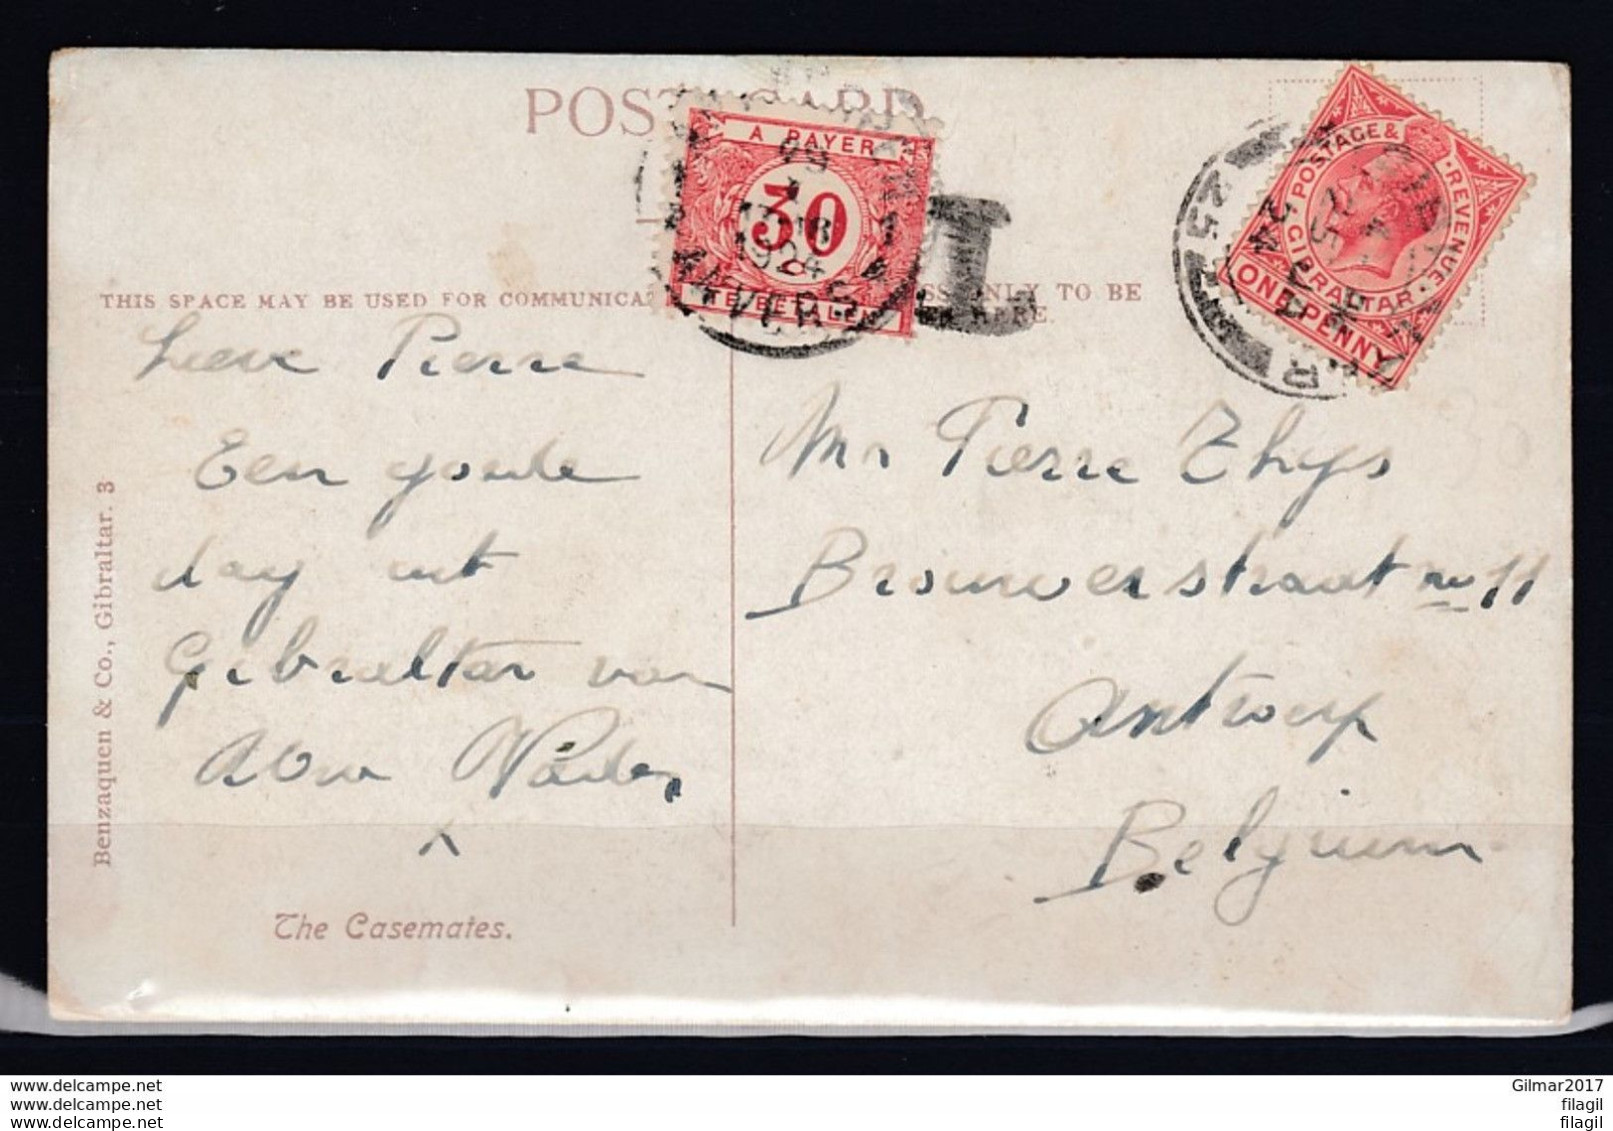 POST CARD
A PAYER
30
TE BETALEN
1924
ANVERS
T
POSTAGE & REVENUE
GIBRALTAR
ONE PENNY
THIS SPACE MAY BE USED FOR
ONLY TO BE
HERE.
Lieve Pierre
Een goede
dag uit
Gibraltar van
Mr Pierre Thys
Brouwerstraat no 11
Antwerp
Belgium
Benzaquen & Co., Gibraltar. 3
The Casemates.
www.delcampe.net
www.delcampe.net
www.delcampe.net
Gilmar2017
filagil
filagil